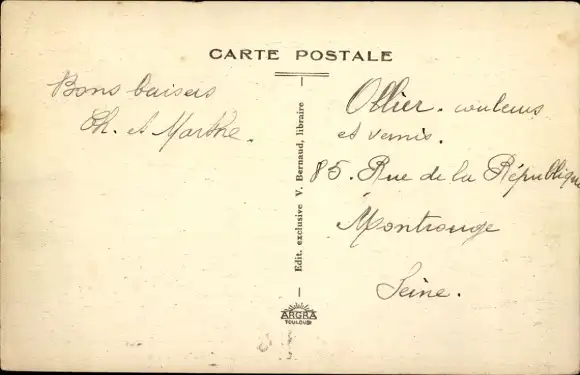 CARTE POSTALE
Bons baisers
Ch. et Marthe.
Edit. exclusive V. Bernaud, libraire
Ollier. couleurs
et vernis.
85. Rue de la République
Montrouge
Seine.
ARGRA
TOULOUSE